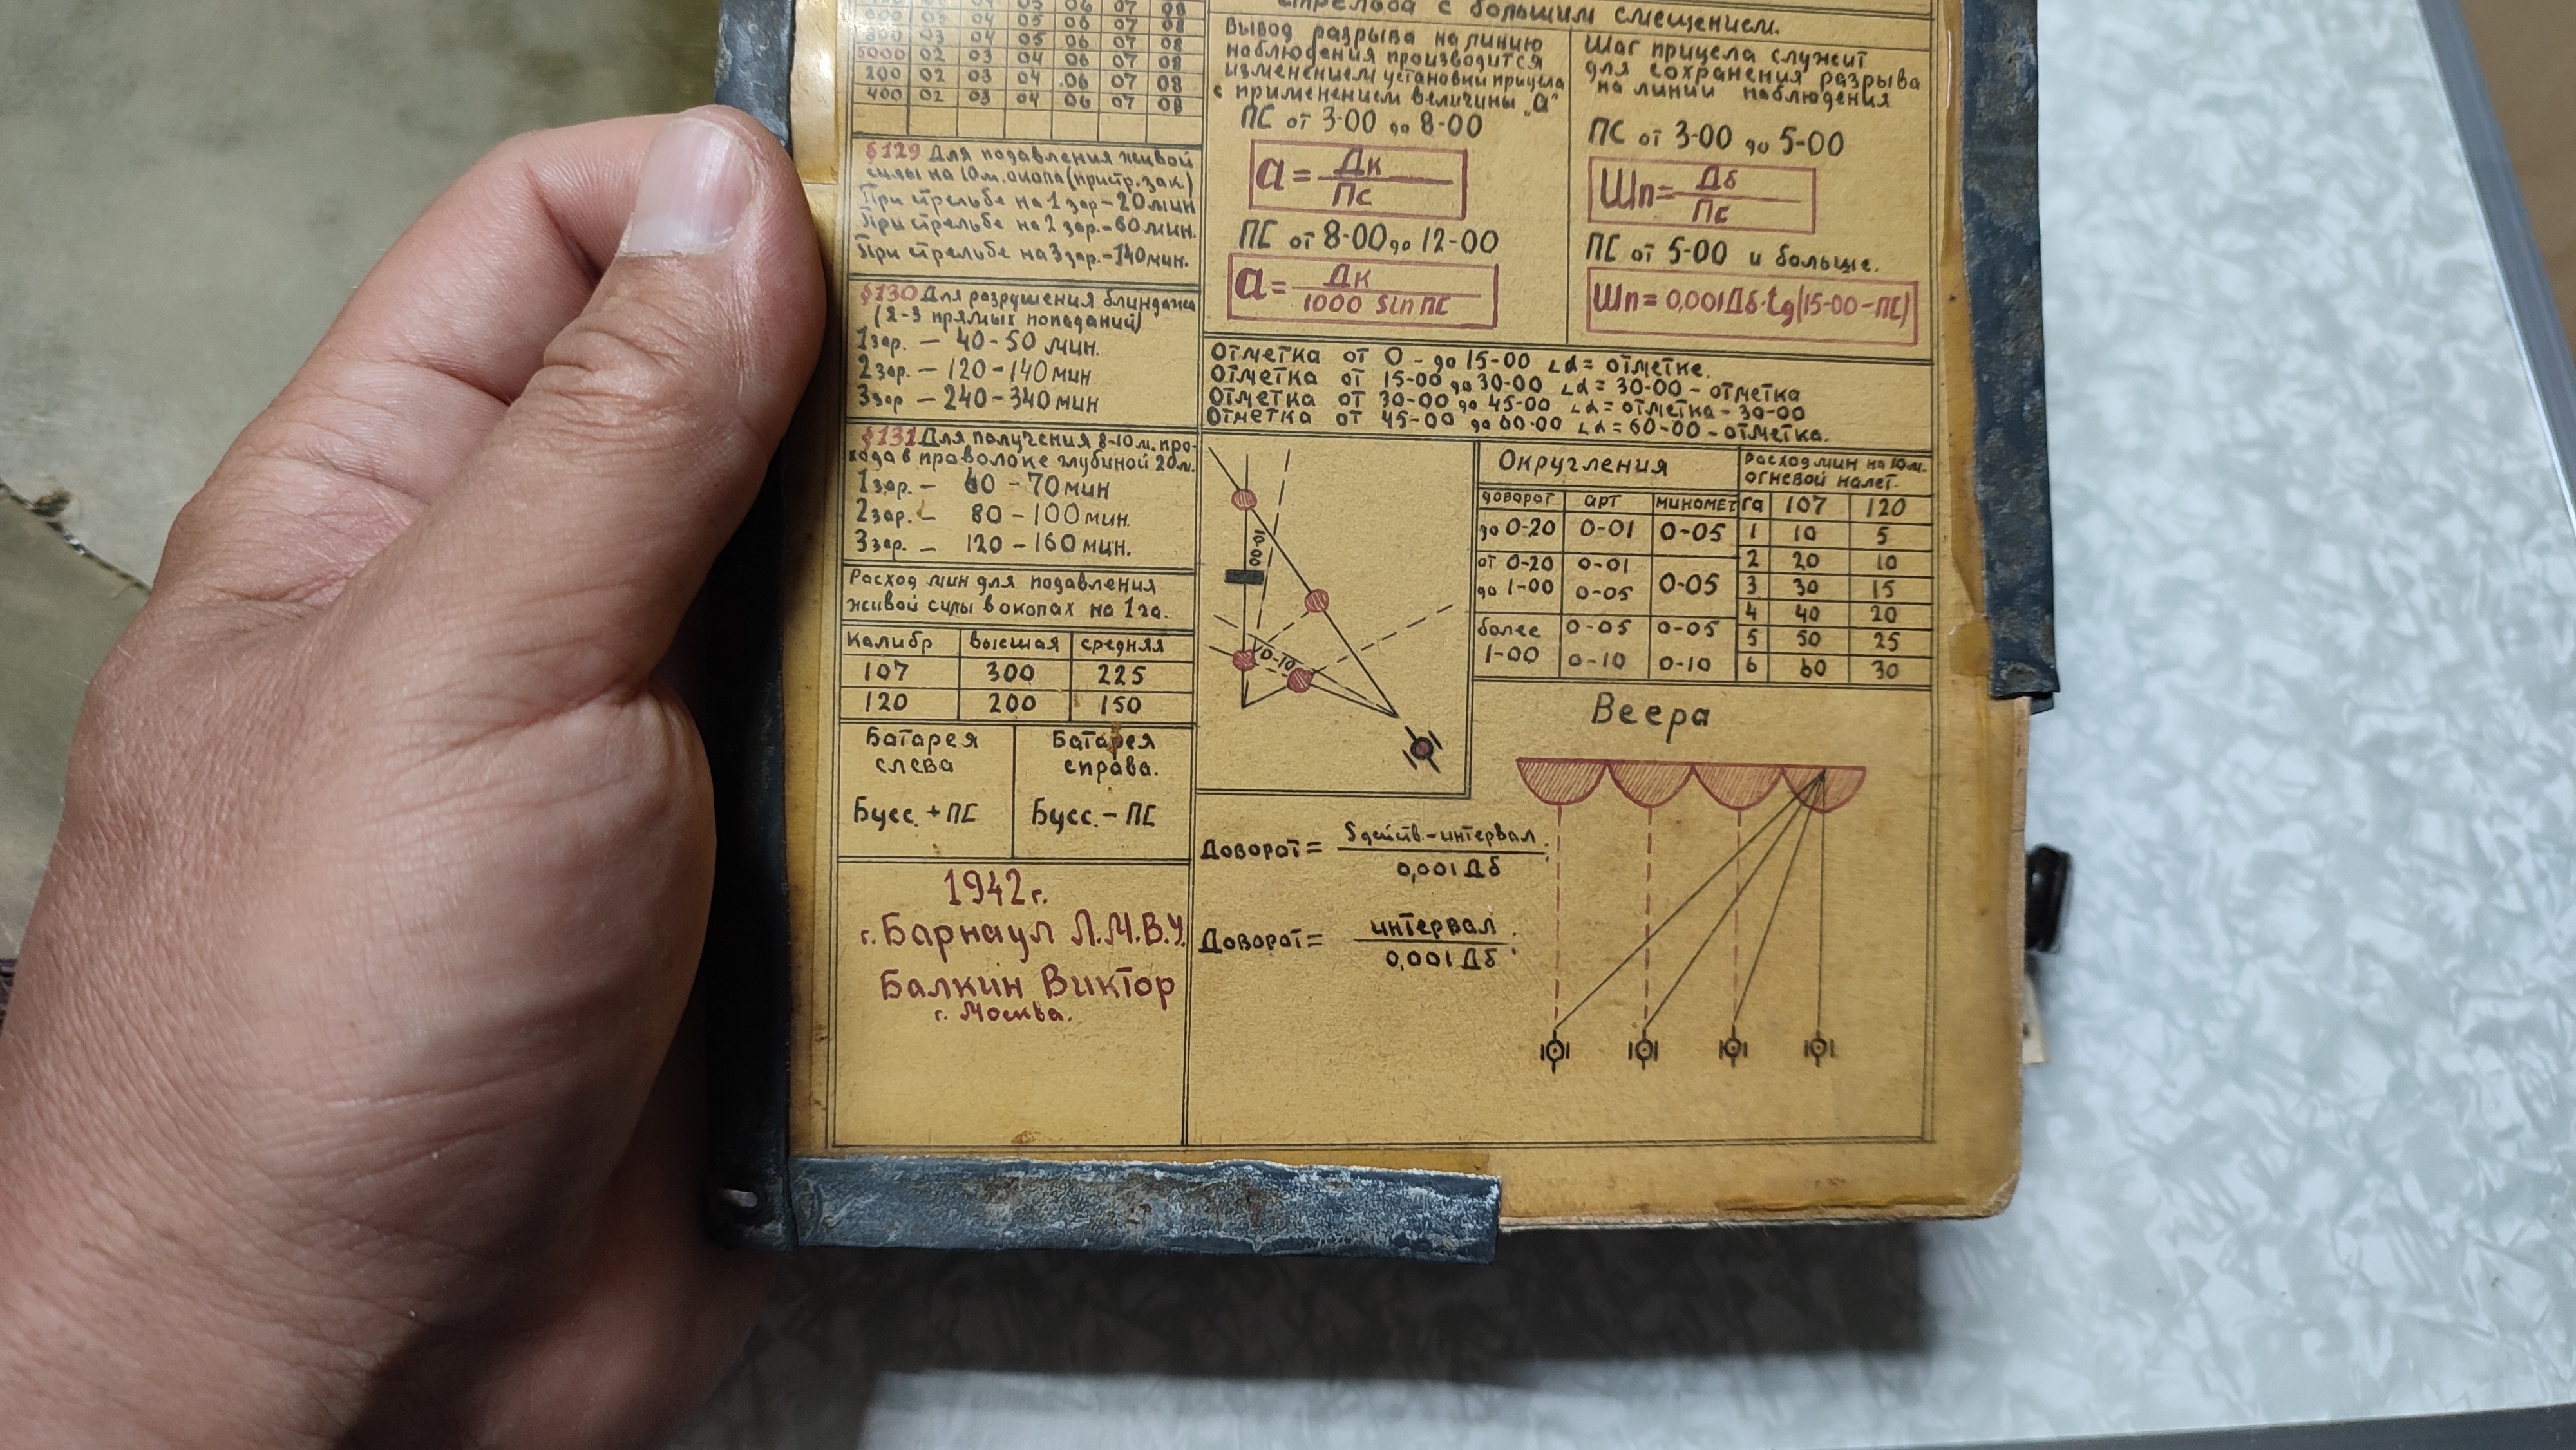 600 03 04 05 06 07 08
800 03 04 05 06 07 08
5000 02 03 04 06 07 08
200 02 03 04 06 07 08
400 02 03 04 06 07 08
§129 Для подавления живой
силы на 10м. окопа (пристр. зак.)
При стрельбе на 1 зар – 20 мин
При стрельбе на 2 зар. – 60 мин.
При стрельбе на 3 зар. – 140 мин.
§130 Для разрушения блиндажа
(2-3 прямых попаданий)
1 зар. – 40-50 мин.
2 зар. – 120-140 мин
3 зар – 240-340 мин
§131 Для получения 8-10 м. про-
хода в проволоке глубиной 20 м.
1 зар. – 60-70 мин
2 зар. – 80-100 мин.
3 зар. – 120-160 мин.
Расход мин для подавления
живой силы в окопах на 1 га.
Калибр высшая средняя
107 300 225
120 200 150
Батарея слева
Бусс. + ПС
Батарея справа.
Бусс. – ПС
1942 г.
г. Барнаул Л.М.В.У.
Балкин Виктор
г. Москва.
стрельба с большим смещением.
Вывод разрыва на линию
наблюдения производится
изменением установки прицела
с применением величины „а"
ПС от 3-00 до 8-00
а = Дк / Пс
ПС от 8-00 до 12-00
а = Дк / 1000 sin ПС
Шаг прицела служит
для сохранения разрыва
на линии наблюдения
ПС от 3-00 до 5-00
Шп = Дб / Пс
ПС от 5-00 и больше.
Шп = 0,001 Дб·tg(15-00-ПС)
Отметка от 0 – до 15-00 ∠α = отметке.
Отметка от 15-00 до 30-00 ∠α = 30-00 – отметка
Отметка от 30-00 до 45-00 ∠α = отметка – 30-00
Отметка от 45-00 до 60-00 ∠α = 60-00 – отметка.
0-10
Округления
доворот арт миномет
до 0-20 0-01 0-05
от 0-20 0-01
до 1-00 0-05 0-05
более 0-05 0-05
1-00 0-10 0-10
Расход мин на 10 м.
огневой налет.
га 107 120
1 10 5
2 20 10
3 30 15
4 40 20
5 50 25
6 60 30
Веера
Доворот = S действ. – интервал / 0,001 Дб
Доворот = интервал / 0,001 Дб